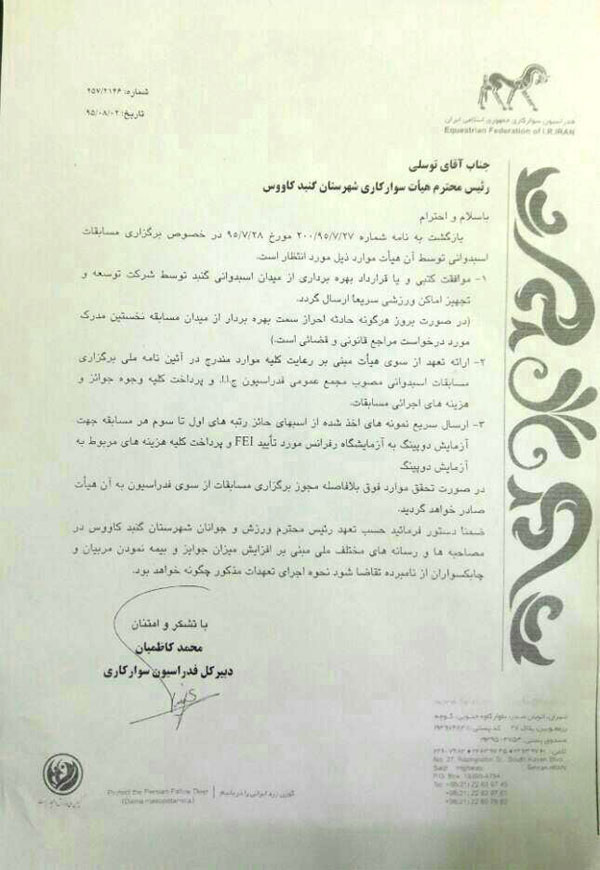 شماره: ۲۵۷/۲۱۴۶
تاریخ: ۹۵/۰۸/۰۲
فدراسیون سوارکاری جمهوری اسلامی ایران
Equestrian Federation of I.R.IRAN
جناب آقای توسلی
رئیس محترم هیأت سوارکاری شهرستان گنبد کاووس
باسلام و احترام
بازگشت به نامه شماره ۲۰۰/۹۵/۷/۲۷ مورخ ۹۵/۷/۲۸ در خصوص برگزاری مسابقات
اسبدوانی توسط آن هیأت موارد ذیل مورد انتظار است.
۱- موافقت کتبی و یا قرارداد بهره برداری از میدان اسبدوانی گنبد توسط شرکت توسعه و
تجهیز اماکن ورزشی سریعا ارسال گردد.
(در صورت بروز هرگونه حادثه احراز سمت بهره بردار از میدان مسابقه نخستین مدرک
مورد درخواست مراجع قانونی و قضائی است.)
۲- ارائه تعهد از سوی هیأت مبنی بر رعایت کلیه موارد مندرج در آئین نامه ملی برگزاری
مسابقات اسبدوانی مصوب مجمع عمومی فدراسیون ج.ا.ا. و پرداخت کلیه وجوه جوائز و
هزینه های اجرائی مسابقات.
۳- ارسال سریع نمونه های اخذ شده از اسبهای حائز رتبه های اول تا سوم هر مسابقه جهت
آزمایش دوپینگ به آزمایشگاه رفرانس مورد تأیید FEI و پرداخت کلیه هزینه های مربوط به
آزمایش دوپینگ.
در صورت تحقق موارد فوق بلافاصله مجوز برگزاری مسابقات از سوی فدراسیون به آن هیأت
صادر خواهد گردید.
ضمناً دستور فرمائید حسب تعهد رئیس محترم ورزش و جوانان شهرستان گنبد کاووس در
مصاحبه ها و رسانه های مختلف ملی مبنی بر افزایش میزان جوایز و بیمه نمودن مربیان و
چابکسواران از نامبرده تقاضا شود نحوه اجرای تعهدات مذکور چگونه خواهد بود.
با تشکر و امتنان
محمد کاظمیان
دبیرکل فدراسیون سوارکاری
Protect the Persian Fallow Deer
(Dama mesopotamica)
گوزن زرد ایرانی را دریابیم